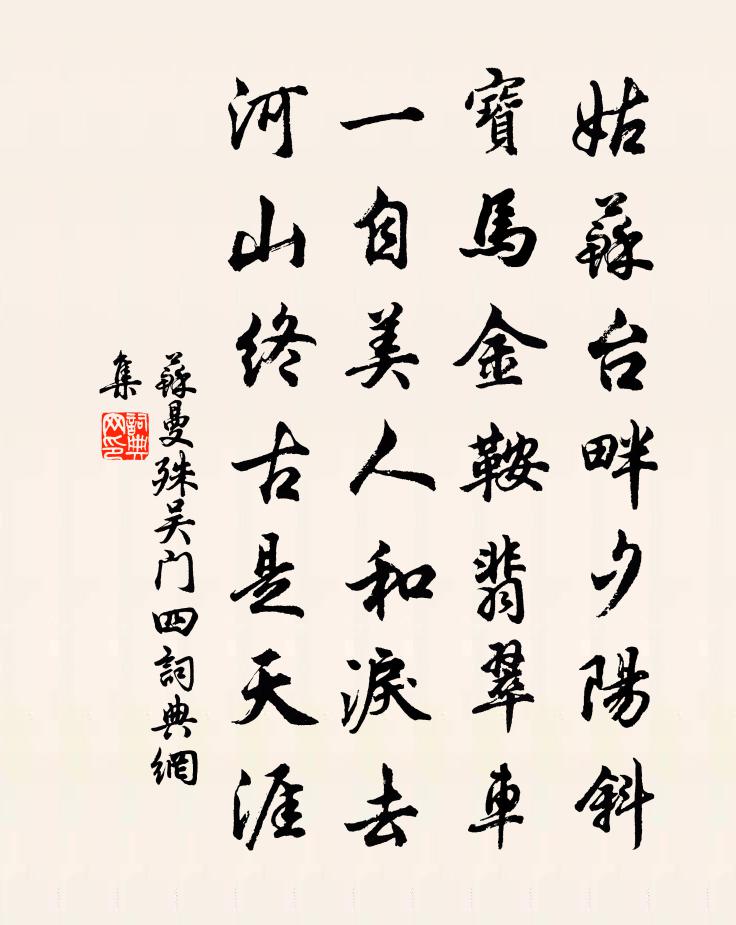 姑蘇台畔夕陽斜
寶馬金鞍翡翠車
一自美人和淚去
河山終古是天涯
蘇曼殊吴门四詞典網
集
詞典
网印